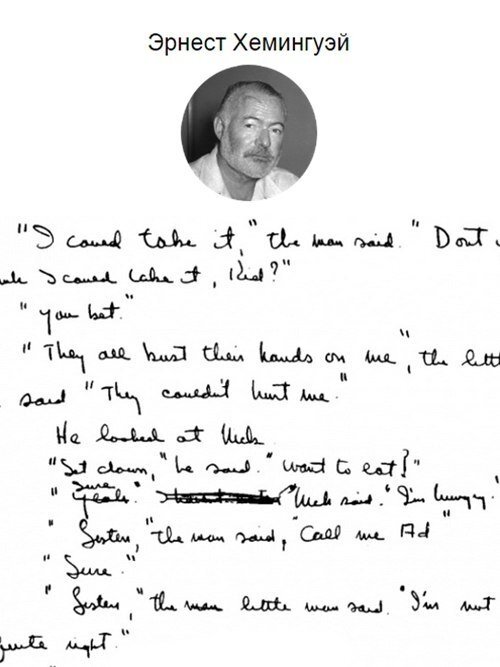 Эрнест Хемингуэй
"I could take it," the man said. "Dont
I could take it, Kid?"
"You bet."
"They all bust their hands on me", the littl
said "They couldn't hurt me."
He looked at Nick
"Sit down," he said. "Want to eat?"
Sure
"Yeah." "Nick said. "I'm hungry."
"Listen," the man said, "Call me Ad"
"Sure."
"Listen," the man little man said. "I'm not
quite right."